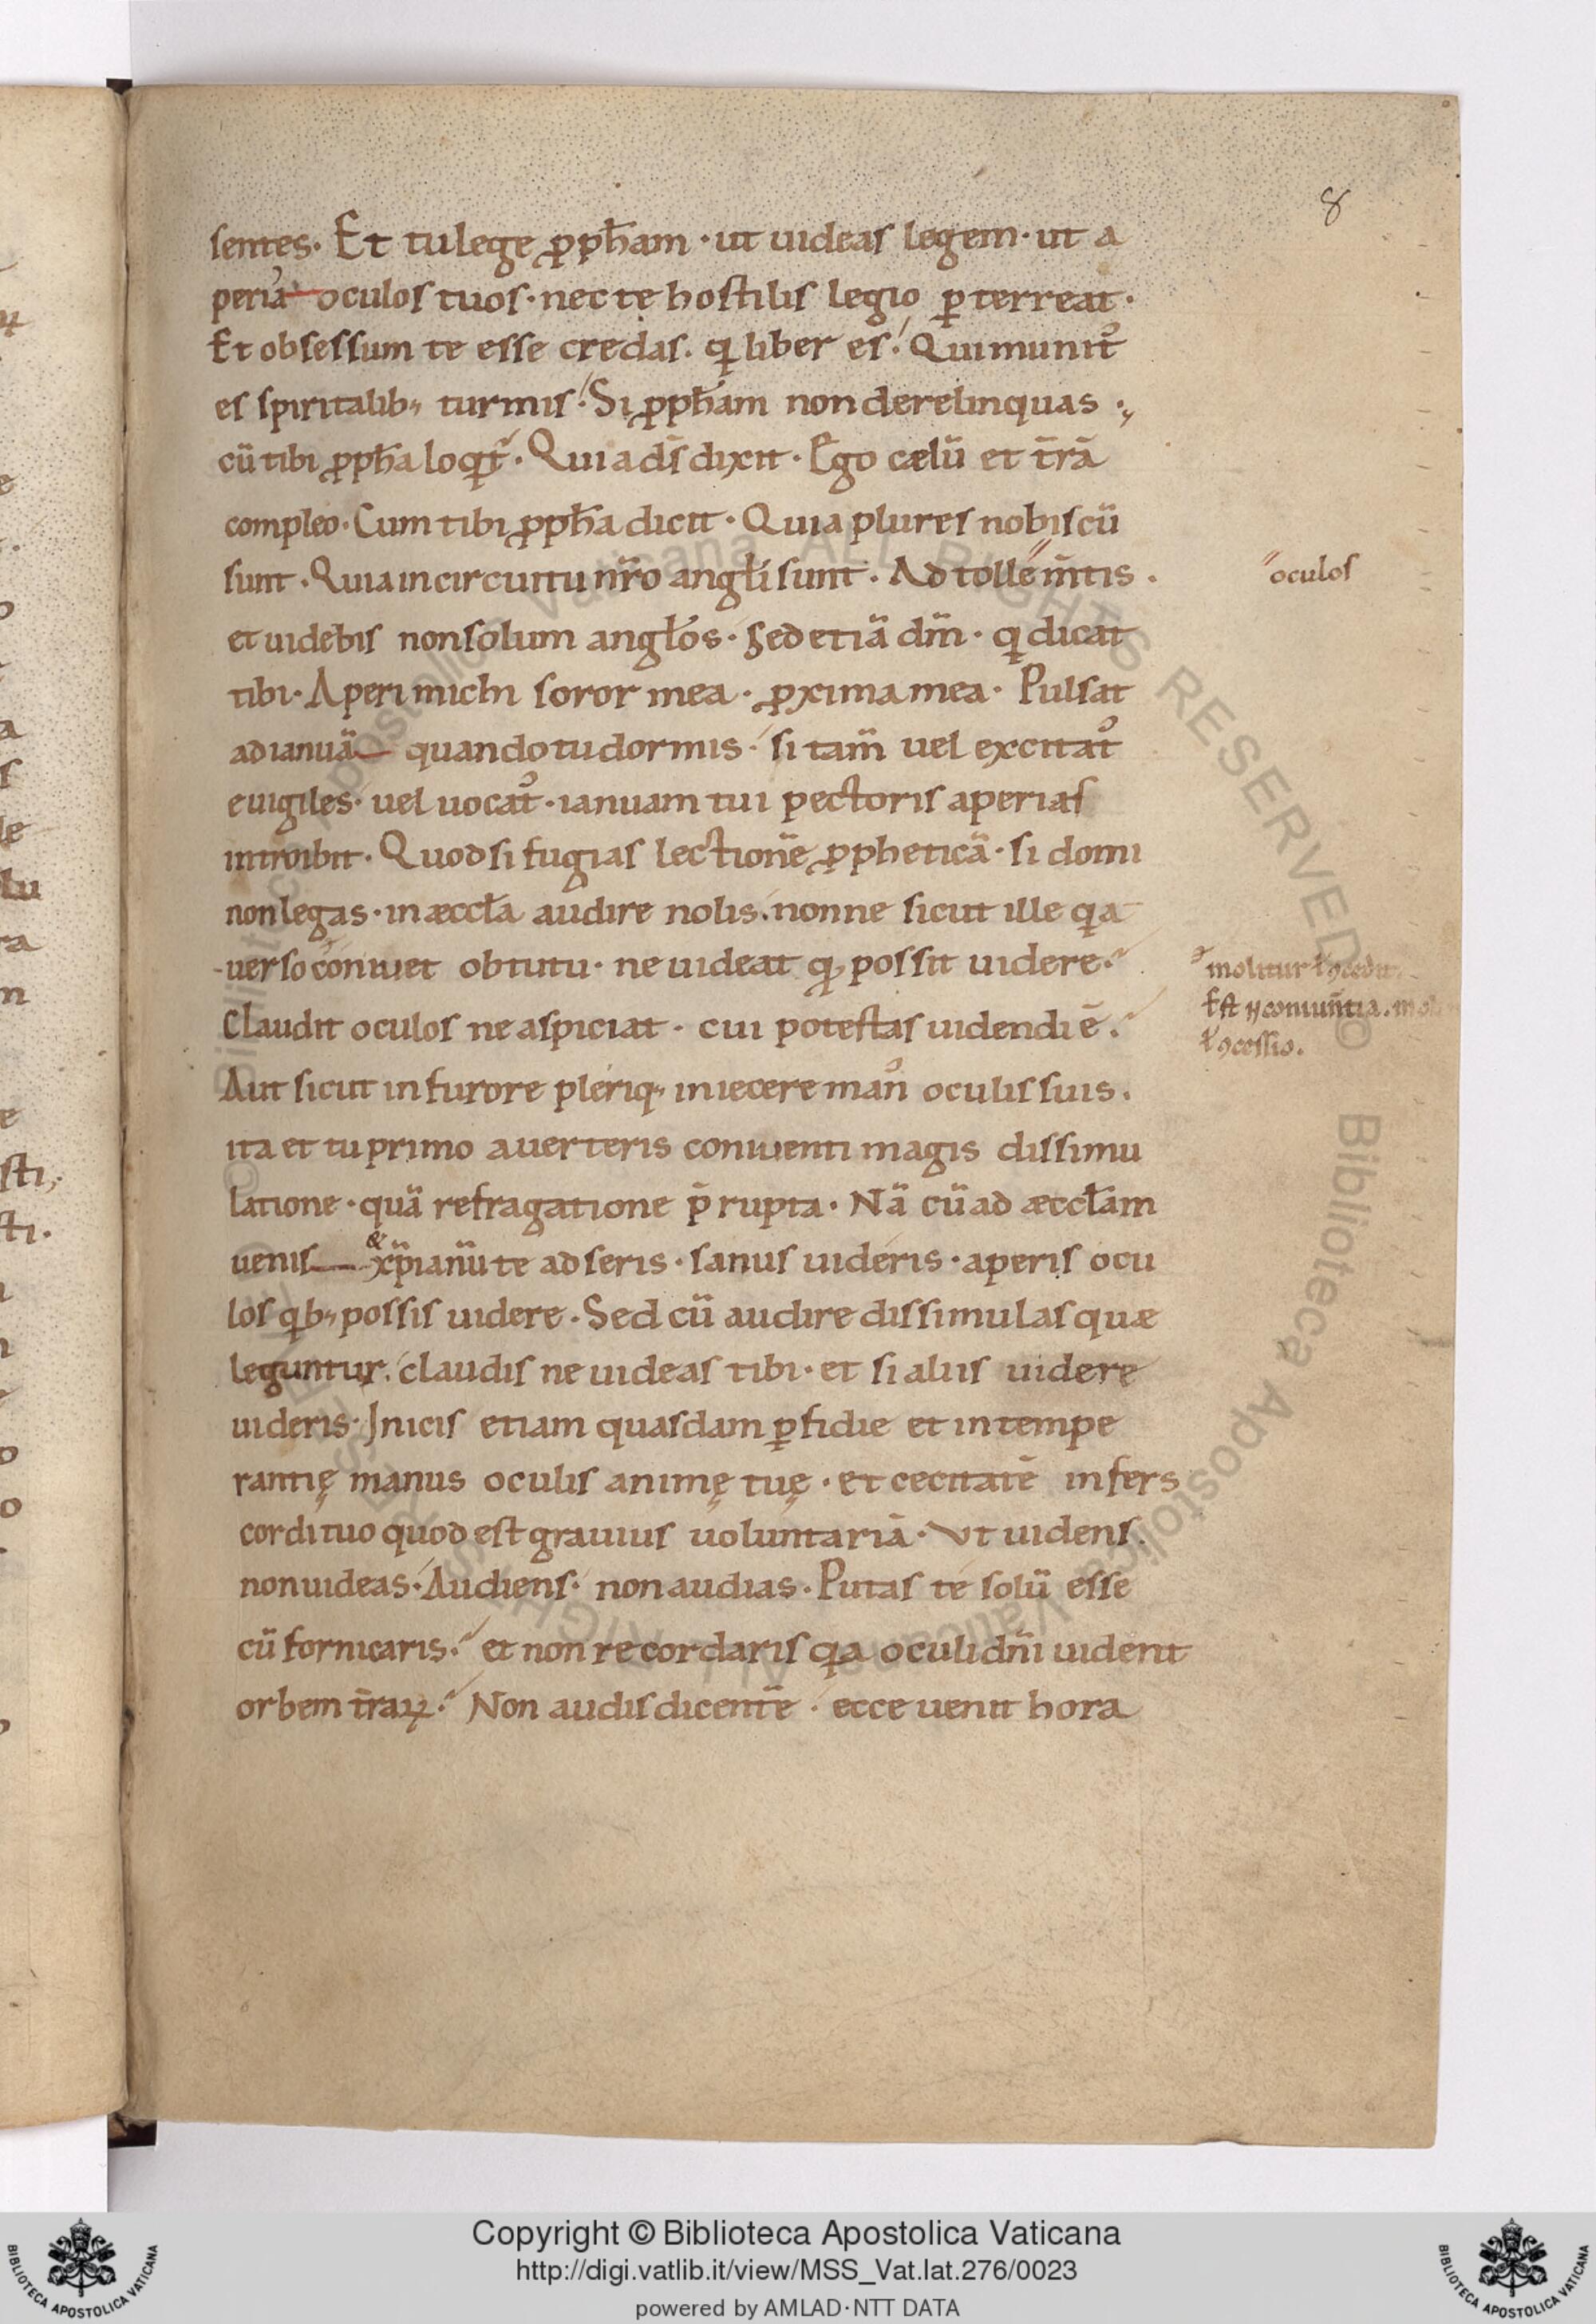 8
sentes. Et tu lege ꝓph̄am · ut uideas legem · ut a
periaˀ oculos tuos · nec te hostilis legio ꝑterreat ·
Et obsessum te esse credas. q̄ liber es. Qui munitˀ
es spiritalib; turmis. Si ꝓph̄am non derelinquas ·,
cū tibi ꝓph̄a loq̄t̄. Quia d̄s dixit · Ego cælū et t̄rā
compleo · Cum tibi ꝓph̄a dicit · Quia plures nobiscū
sunt · Quia in circuitu nr̄o angl̄i sunt · Ad tolle m̄tis ·
oculos
et uidebis non solum angl̄os · sed etiā dm̄ · q̄ dicat
tibi · Aperi michi soror mea · ꝓxima mea · Pulsat
ad ianuā quando tu dormis · si tam̄ uel excitatˀ
euigiles · uel uocatˀ · ianuam tui pectoris aperias
introibit · Quod si fugias lectionē ꝓpheticā · si domi
non legas · in æccl̄a audire nolis. nonne sicut ille q a
uerso coniuet obtutu · ne uideat q̄ possit uidere.
Claudit oculos ne aspiciat · cui potestas uidendi ē.
molitur ł ꝯcedit.
Est ꝯconiun̄tia.
ł ꝯcessio.
Aut sicut in furore pleriq; iniecere manˀ oculis suis.
ita et tu primo auerteris coniuenti magis dissimu
latione · quā refragatione p̄rupta · Nā cū ad æccl̄am
uenis & xp̄ianū te adseris · sanus uideris · aperis ocu
los qb; possis uidere · Sed cū audire dissimulas quæ
leguntur. claudis ne uideas tibi · et si aliis uidere
uideris · Inicis etiam quasdam ꝑfidie et intempe
rantię manus oculis animę tuę · et cecitatē infers
cordi tuo quod est grauius uoluntariā · Vt uidens.
non uideas · Audiens · non audias. Putas te solū esse
cū fornicaris. et non recordaris qa oculi dn̄i uident
orbem t̄raꝝ. Non audis dicentē · ecce uenit hora
Copyright © Biblioteca Apostolica Vaticana
http://digi.vatlib.it/view/MSS_Vat.lat.276/0023
powered by AMLAD·NTT DATA
BIBLIOTECA APOSTOLICA VATICANA
BIBLIOTECA APOSTOLICA VATICANA